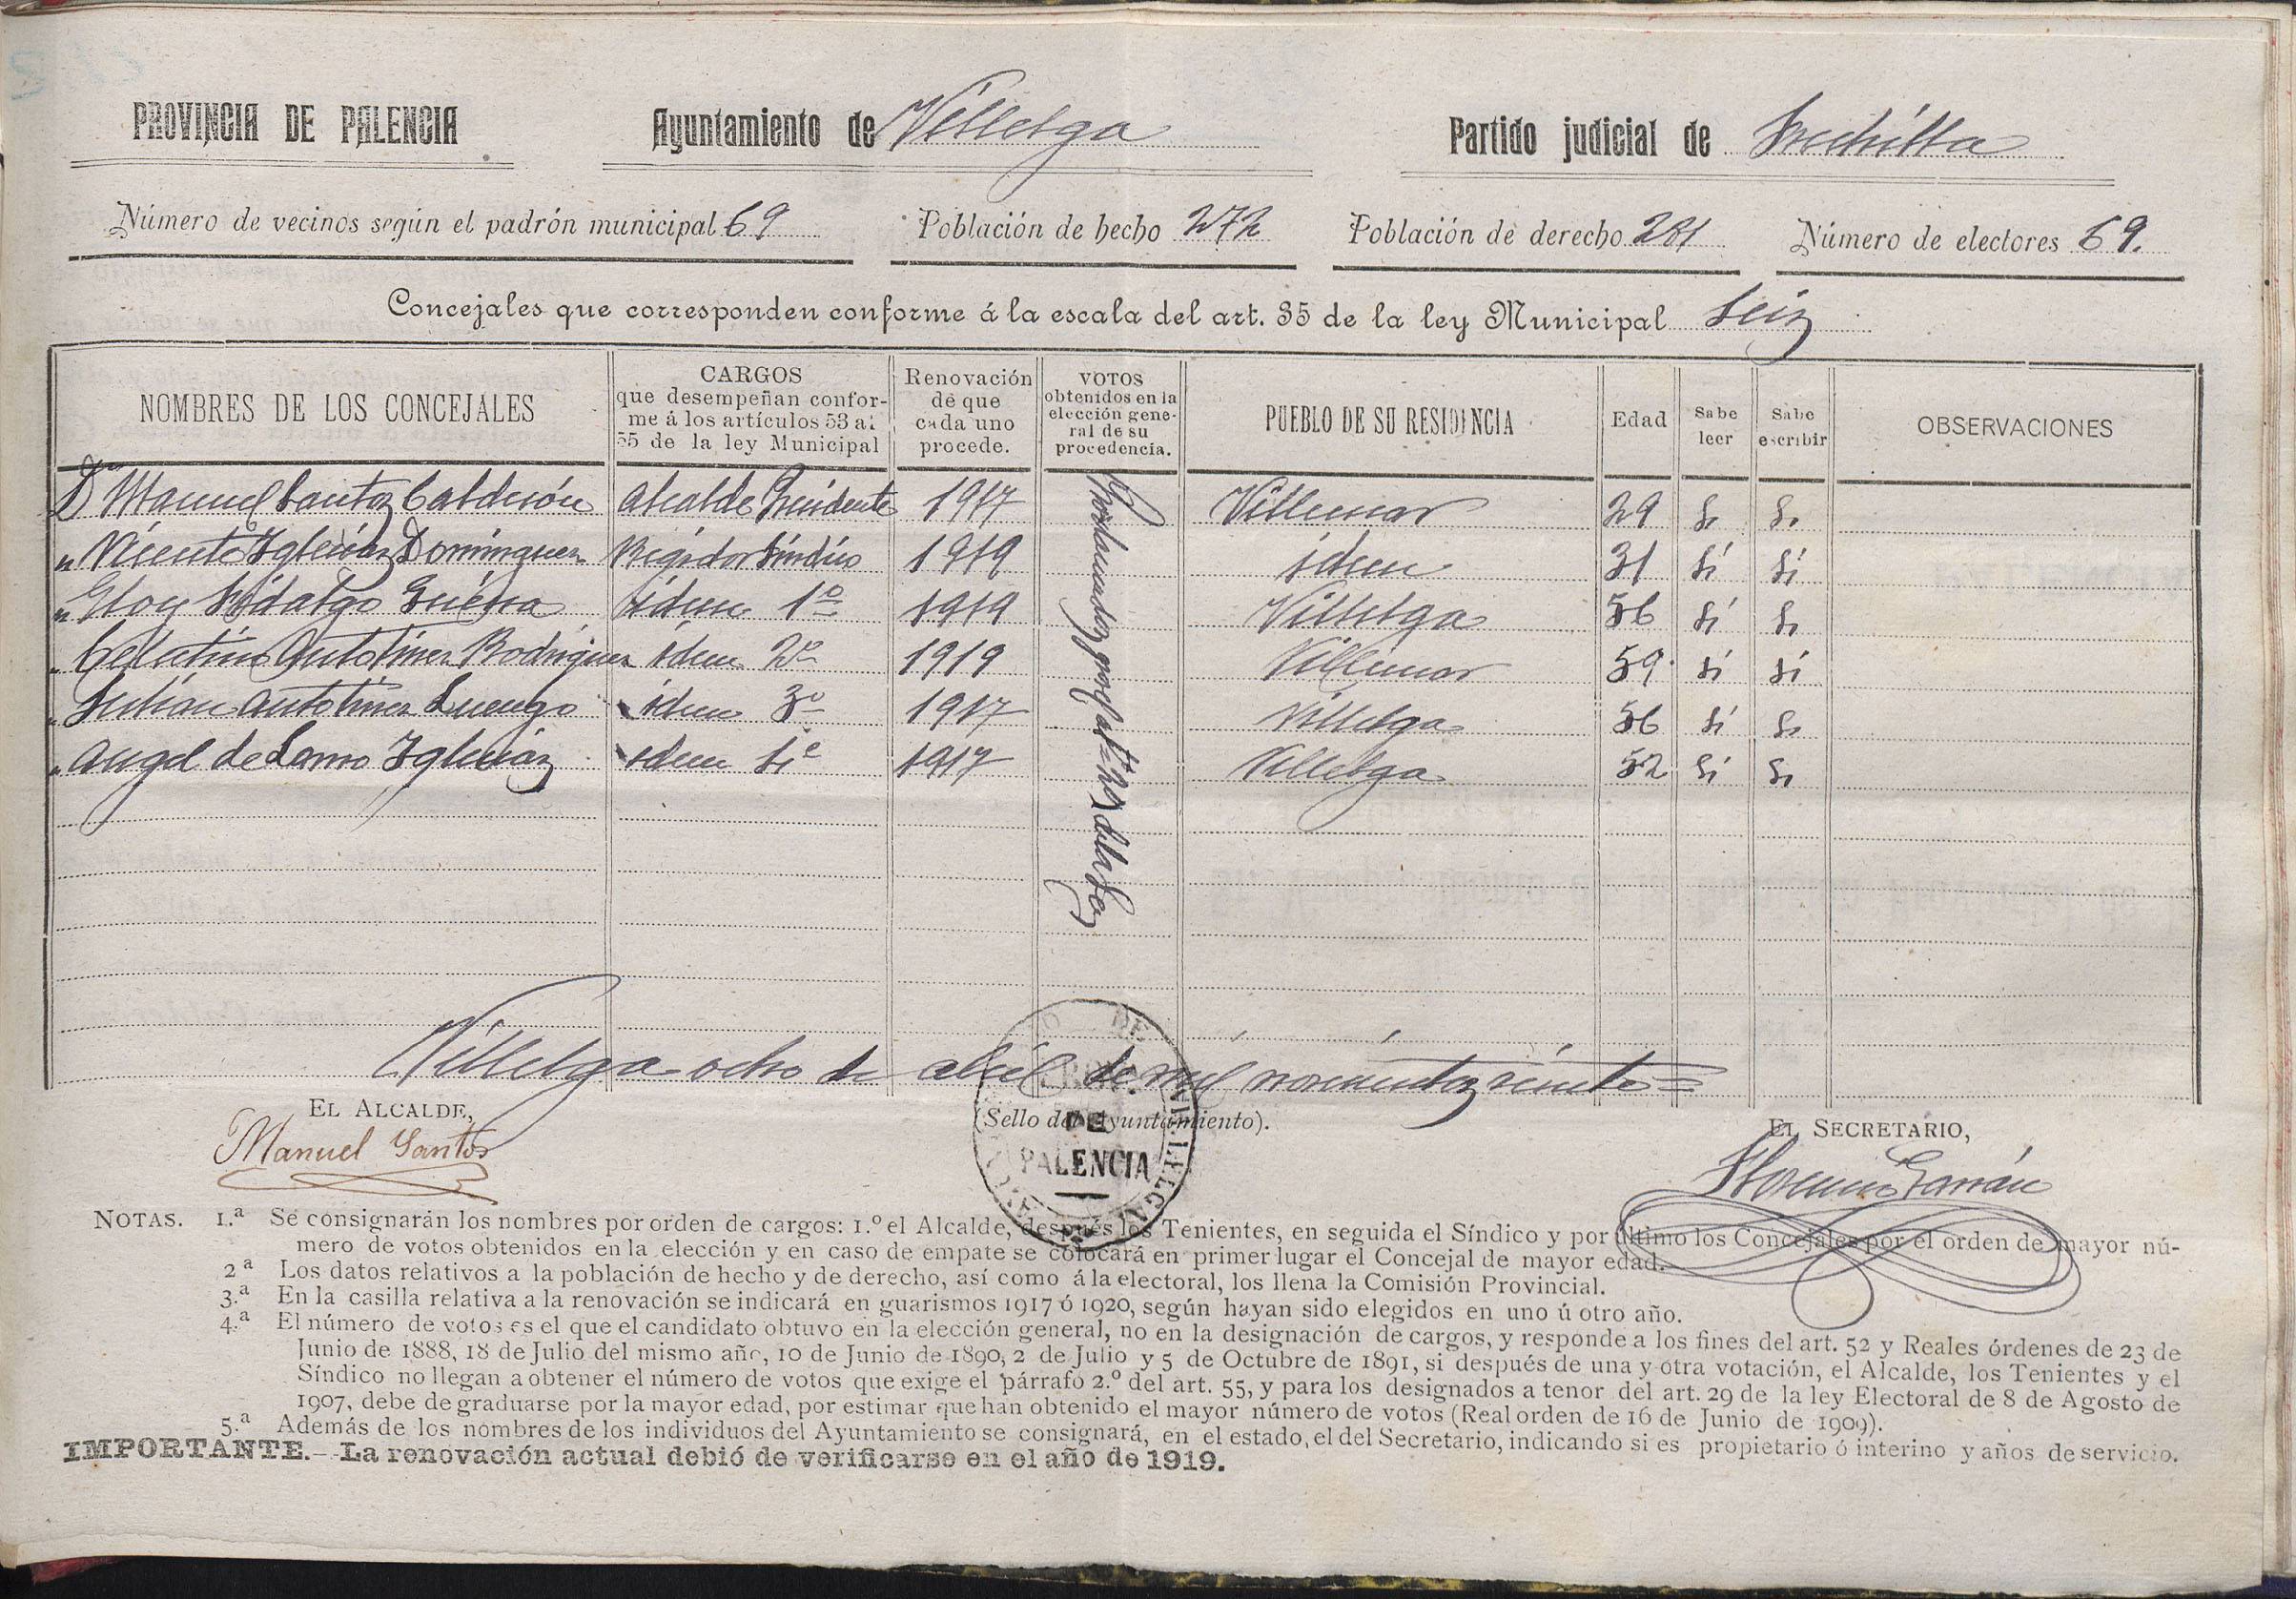 PROVINCIA DE PALENCIA Ayuntamiento de Villelga Partido judicial de Frechilla
Número de vecinos según el padrón municipal 69 Población de hecho 272 Población de derecho 281 Número de electores 69.
Concejales que corresponden conforme á la escala del art. 35 de la ley Municipal Seis
NOMBRES DE LOS CONCEJALES
CARGOS
que desempeñan confor-
me á los artículos 53 al
55 de la ley Municipal
Renovación
de que
cada uno
procede.
VOTOS
obtenidos en la
elección gene-
ral de su
procedencia.
PUEBLO DE SU RESIDENCIA
Edad
Sabe
leer
Sabe
escribir
OBSERVACIONES
Dn Manuel Santos Calderón Alcalde Presidente 1917 Villemar 29 Si Si
" Vicente Iglesias Dominguez Regidor Síndico 1919 idem 31 Sí Sí
" Eloy Hidalgo Guerra idem 1º 1919 Villelga 56 Sí Si
" Celestino Antolinez Rodriguez idem 2º 1919 Villemar 59 Sí Sí
" Julián Antolinez Luengo idem 3º 1917 Villelga 56 Sí Si
" Angel de Lamo Iglesias idem 1917 Villelga 52 Si Si
Proclamados por el artº 29 de la Ley
Villelga ocho de abril de mil novecientos veinte=
EL ALCALDE,
Manuel Santos
(Sello del Ayuntamiento).
DE VILLELGA
PALENCIA
EL SECRETARIO,
Florencio Garrán
NOTAS. 1.ª Se consignarán los nombres por orden de cargos: 1.º el Alcalde, después los Tenientes, en seguida el Síndico y por último los Concejales por el orden de mayor nú-
mero de votos obtenidos en la elección y en caso de empate se colocará en primer lugar el Concejal de mayor edad.
2ª Los datos relativos a la población de hecho y de derecho, así como á la electoral, los llena la Comisión Provincial.
3.ª En la casilla relativa a la renovación se indicará en guarismos 1917 ó 1920, según hayan sido elegidos en uno ú otro año.
4.ª El número de votos es el que el candidato obtuvo en la elección general, no en la designación de cargos, y responde a los fines del art. 52 y Reales órdenes de 23 de
Junio de 1888, 18 de Julio del mismo año, 10 de Junio de 1890, 2 de Julio y 5 de Octubre de 1891, si después de una y otra votación, el Alcalde, los Tenientes y el
Síndico no llegan a obtener el número de votos que exige el párrafo 2.º del art. 55, y para los designados a tenor del art. 29 de la ley Electoral de 8 de Agosto de
1907, debe de graduarse por la mayor edad, por estimar que han obtenido el mayor número de votos (Real orden de 16 de Junio de 1909).
5.ª Además de los nombres de los individuos del Ayuntamiento se consignará, en el estado, el del Secretario, indicando si es propietario ó interino y años de servicio.
IMPORTANTE.- La renovación actual debió de verificarse en el año de 1919.